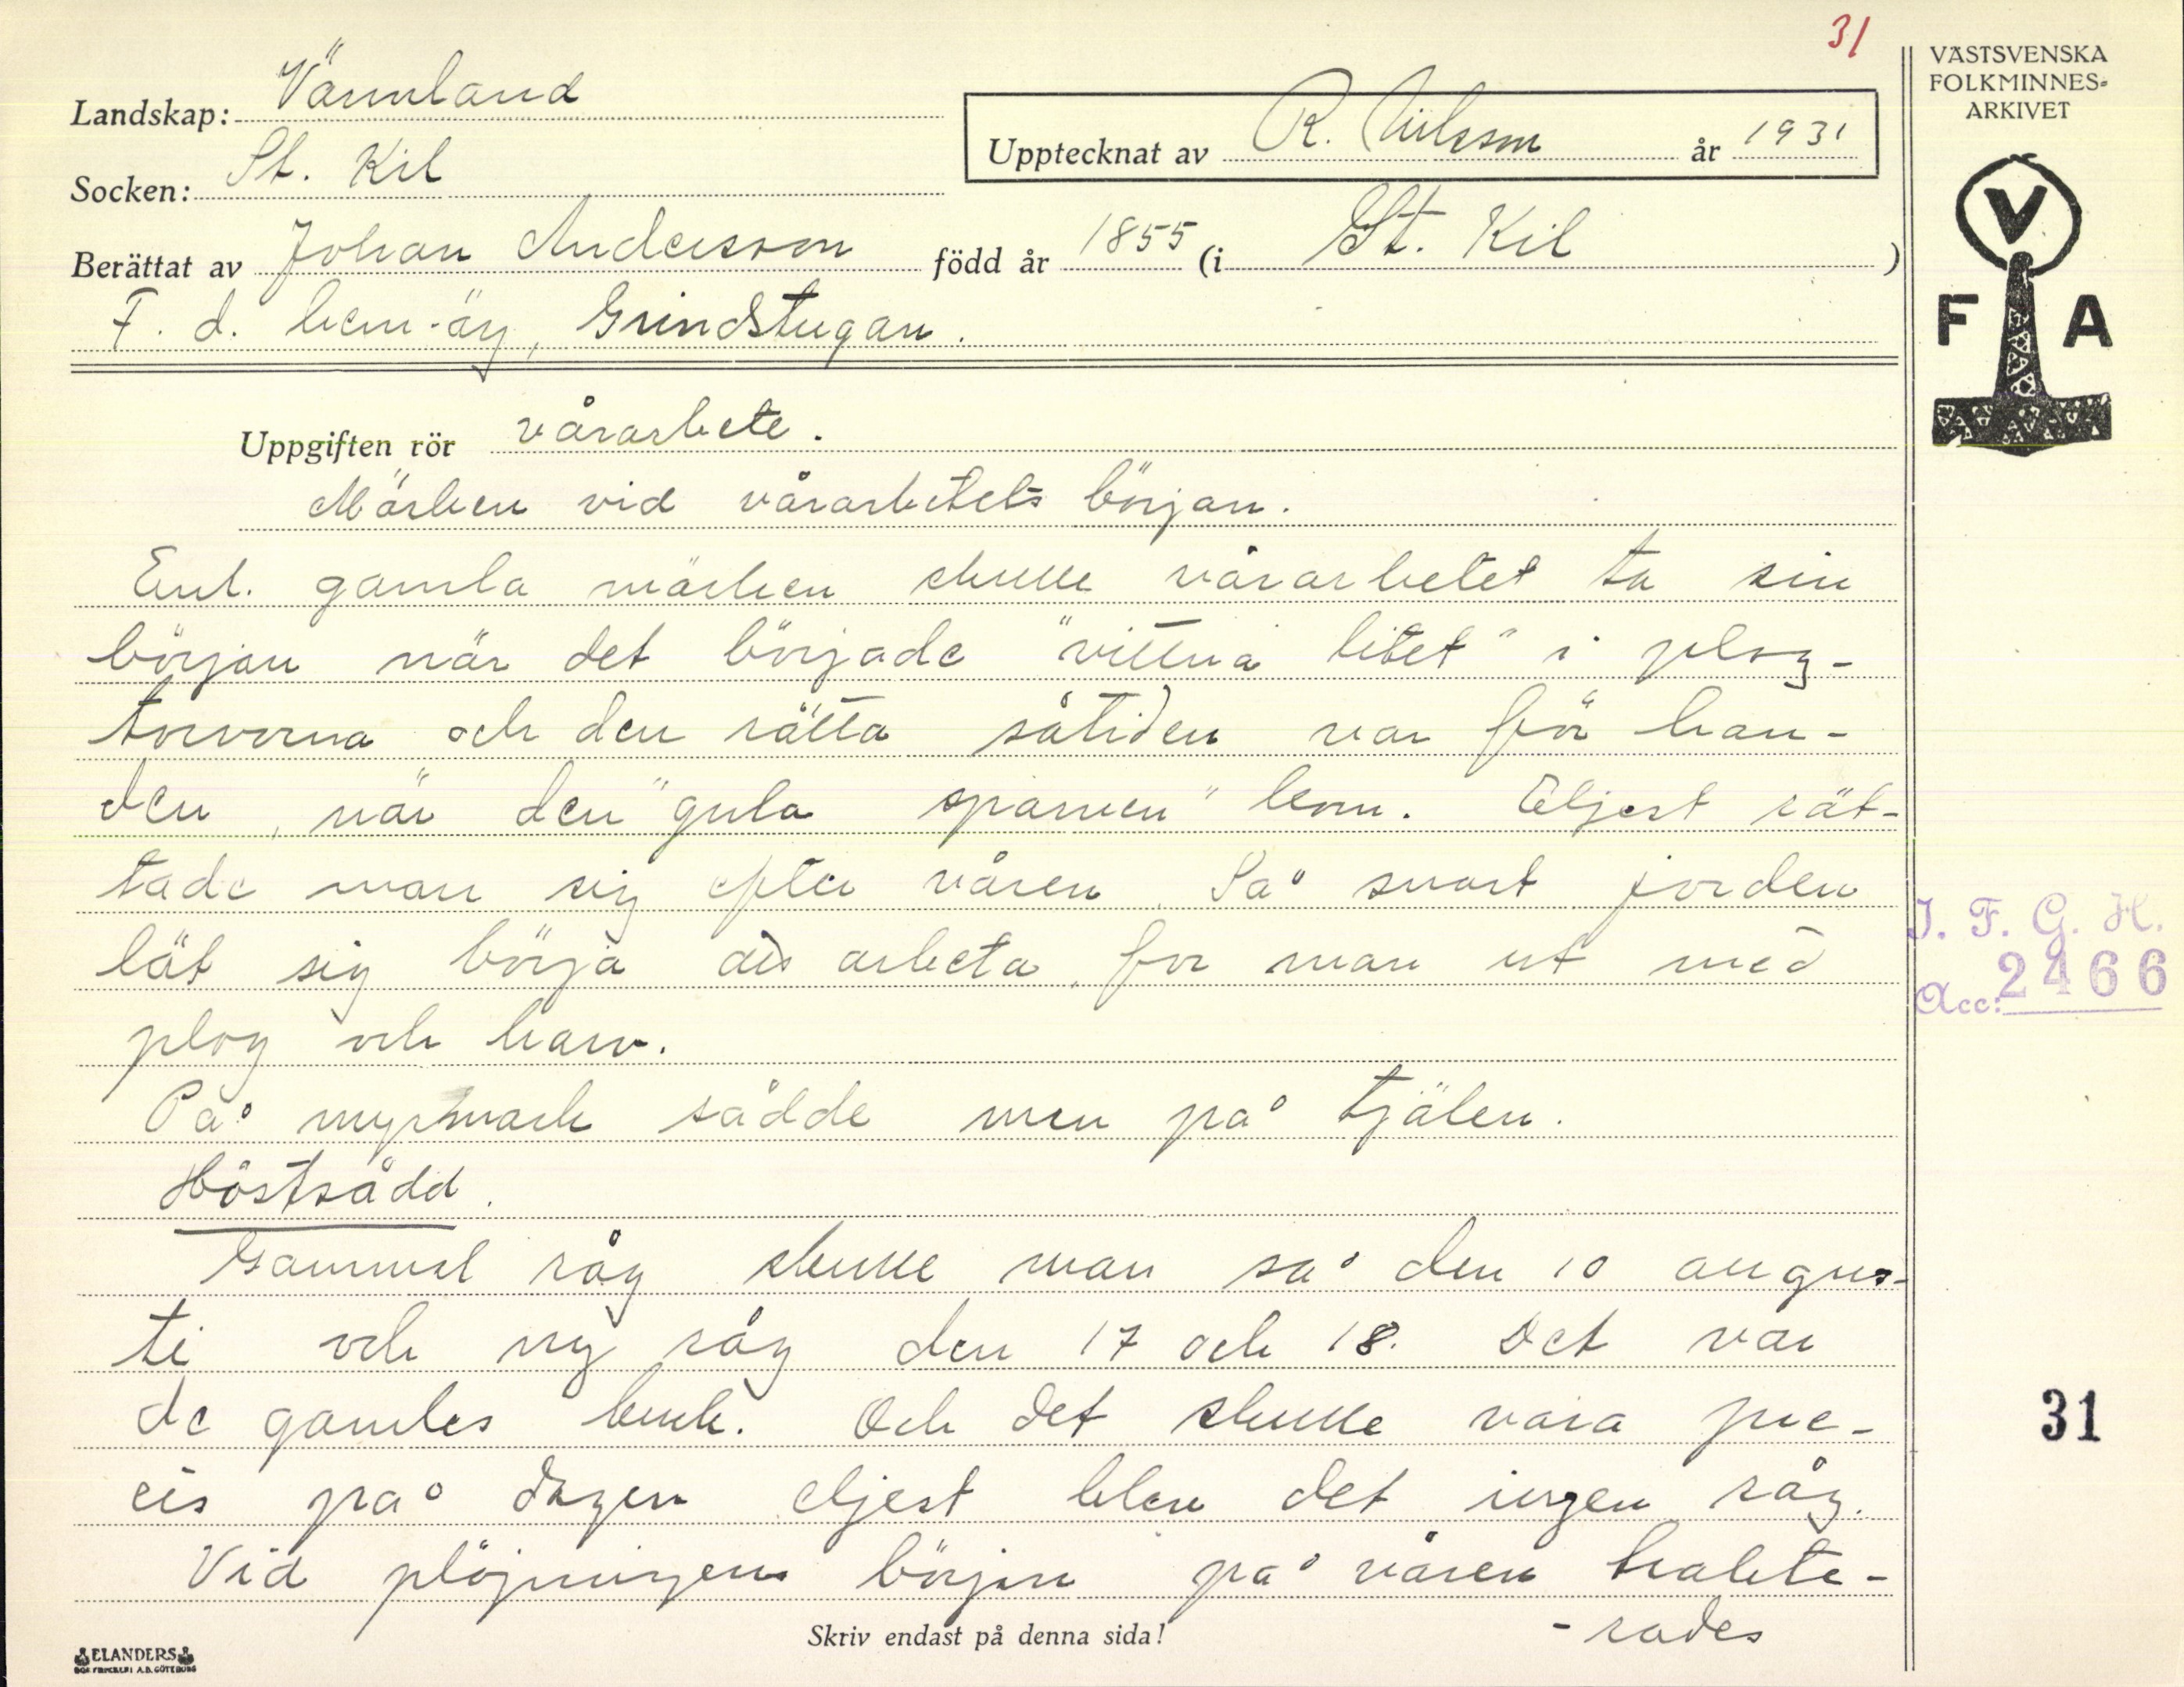 31
VÄSTSVENSKA
FOLKMINNES-
ARKIVET
Landskap: Värmland
Upptecknat av R. Nilsson år 1931
Socken: St. Kil
Berättat av Johan Andersson född år 1855 (i St. Kil)
F. d. hem.äg, Grindstugan.
V
F A
Uppgiften rör vårarbete.
Märken vid vårarbetets början.
Enl. gamla märken skulle vårarbetet ta sin
början när det började "vittna litet" i plog-
torvorna och den rätta såtiden var för han-
den, när den "gula sparven" kom. Eljest rät-
tade man sig efter våren. Så snart jorden
lät sig börja att arbeta, for man ut med
plog och harv.
På myrmark sådde men på tjälen.
Höstsådd.
Gammal råg skulle man så den 10 augus-
ti och ny råg den 17 och 18. Det var
de gamles bruk. Och det skulle vara pre-
cis på dagen eljest blev det ingen råg.
Vid plöjningens början på våren trakte-
-rades
I. F. G. H.
Acc: 2466
31
Skriv endast på denna sida!
ELANDERS
BOKTRYCKERI A.B. GÖTEBORG